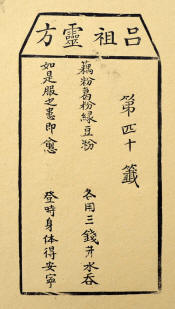 呂祖靈方
第四十籤
藕粉葛粉綠豆粉
各用三錢井水吞
如是服之患即愈
登時身体得安寧